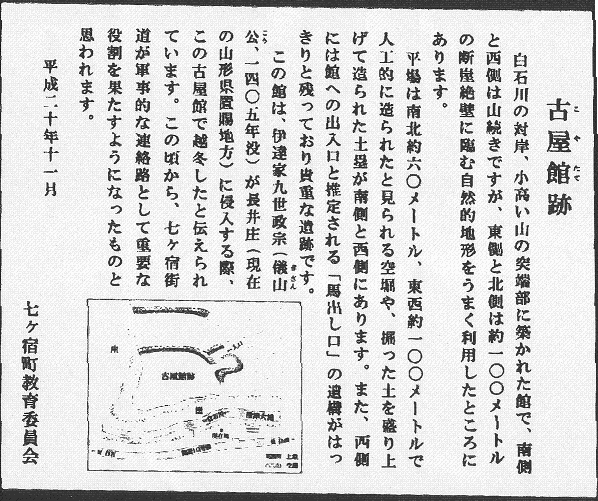 古屋館跡
こやたて
白石川の対岸、小高い山の突端部に築かれた館で、南側
と西側は山続きですが、東側と北側は約一〇〇メートル
の断崖絶壁に臨む自然的地形をうまく利用したところに
あります。
平場は南北約六〇メートル、東西約一〇〇メートルで
人工的に造られたと見られる空堀や、掘った土を盛り上
げて造られた土塁が南側と西側にあります。また、西側
には館への出入口と推定される「馬出し口」の遺構がはっ
きりと残っており貴重な遺跡です。
この館は、伊達家九世政宗（儀山
公、一四〇五年没）が長井庄（現在
の山形県置賜地方）に侵入する際、
この古屋館で越冬したと伝えられ
ています。この頃から、七ヶ宿街
道が軍事的な連絡路として重要な
役割を果たすようになったものと
思われます。
平成二十年十一月
七ヶ宿町教育委員会
古屋館跡